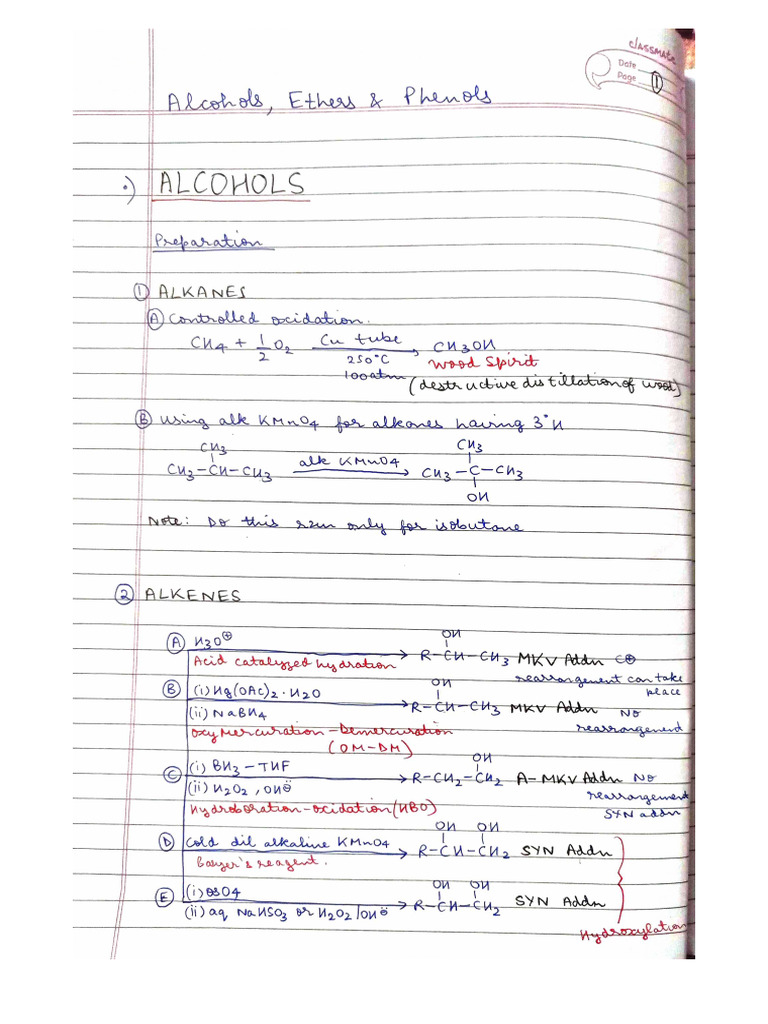 classmate
Date
Page 1
Alcohols, Ethers & Phenols
•) ALCOHOLS
Preparation
① ALKANES
Ⓐ Controlled oxidation.
CH4 + 1/2 O2 Cu tube → CH3OH
250°C Wood Spirit
100atm (destructive distillation of wood)
Ⓑ Using alk KMnO4 for alkanes having 3°H
CH3 CH3
CH3-CH-CH3 alk KMnO4 → CH3-C-CH3
OH
Note: Do this rxn only for isobutane
② ALKENES
Ⓐ H3O⊕ OH
Acid catalyzed hydration → R-CH-CH3 MKV Addn C⊕
rearrangement can take place
Ⓑ (i) Hg(OAc)2·H2O OH
(ii) NaBH4 → R-CH-CH3 MKV Addn NO rearrangement
Oxymercuration-Demercuration
(OM-DM)
Ⓒ (i) BH3-THF OH
(ii) H2O2, OH⊖ → R-CH2-CH2 A-MKV Addn NO
rearrangement
SYN addn
Hydroboration-oxidation (HBO)
Ⓓ Cold dil alkaline KMnO4 OH OH
→ R-CH-CH2 SYN Addn
Baeyer's reagent.
Ⓔ (i) OsO4 OH OH
(ii) aq NaHSO3 or H2O2/OH⊖ → R-CH-CH2 SYN Addn
Hydroxylation